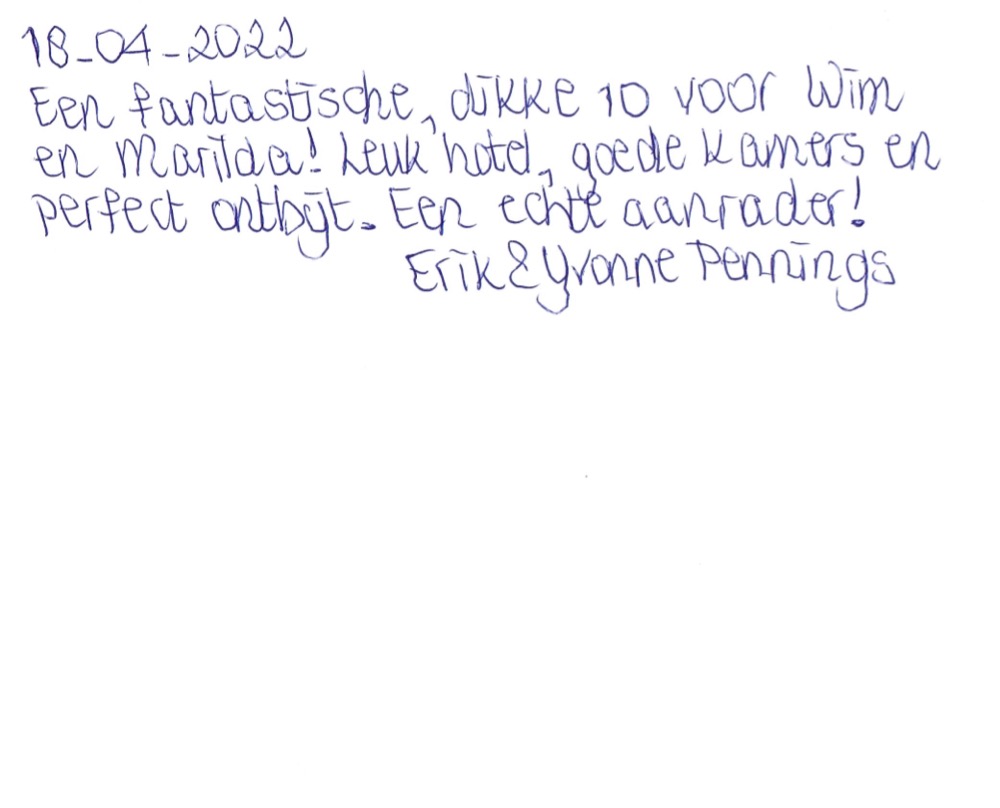 18-04-2022
Een fantastische, dikke 10 voor Wim
en Marilda! Leuk hotel, goede kamers en
perfect ontbijt. Een echte aanrader!
Erik & Yvonne Pennings